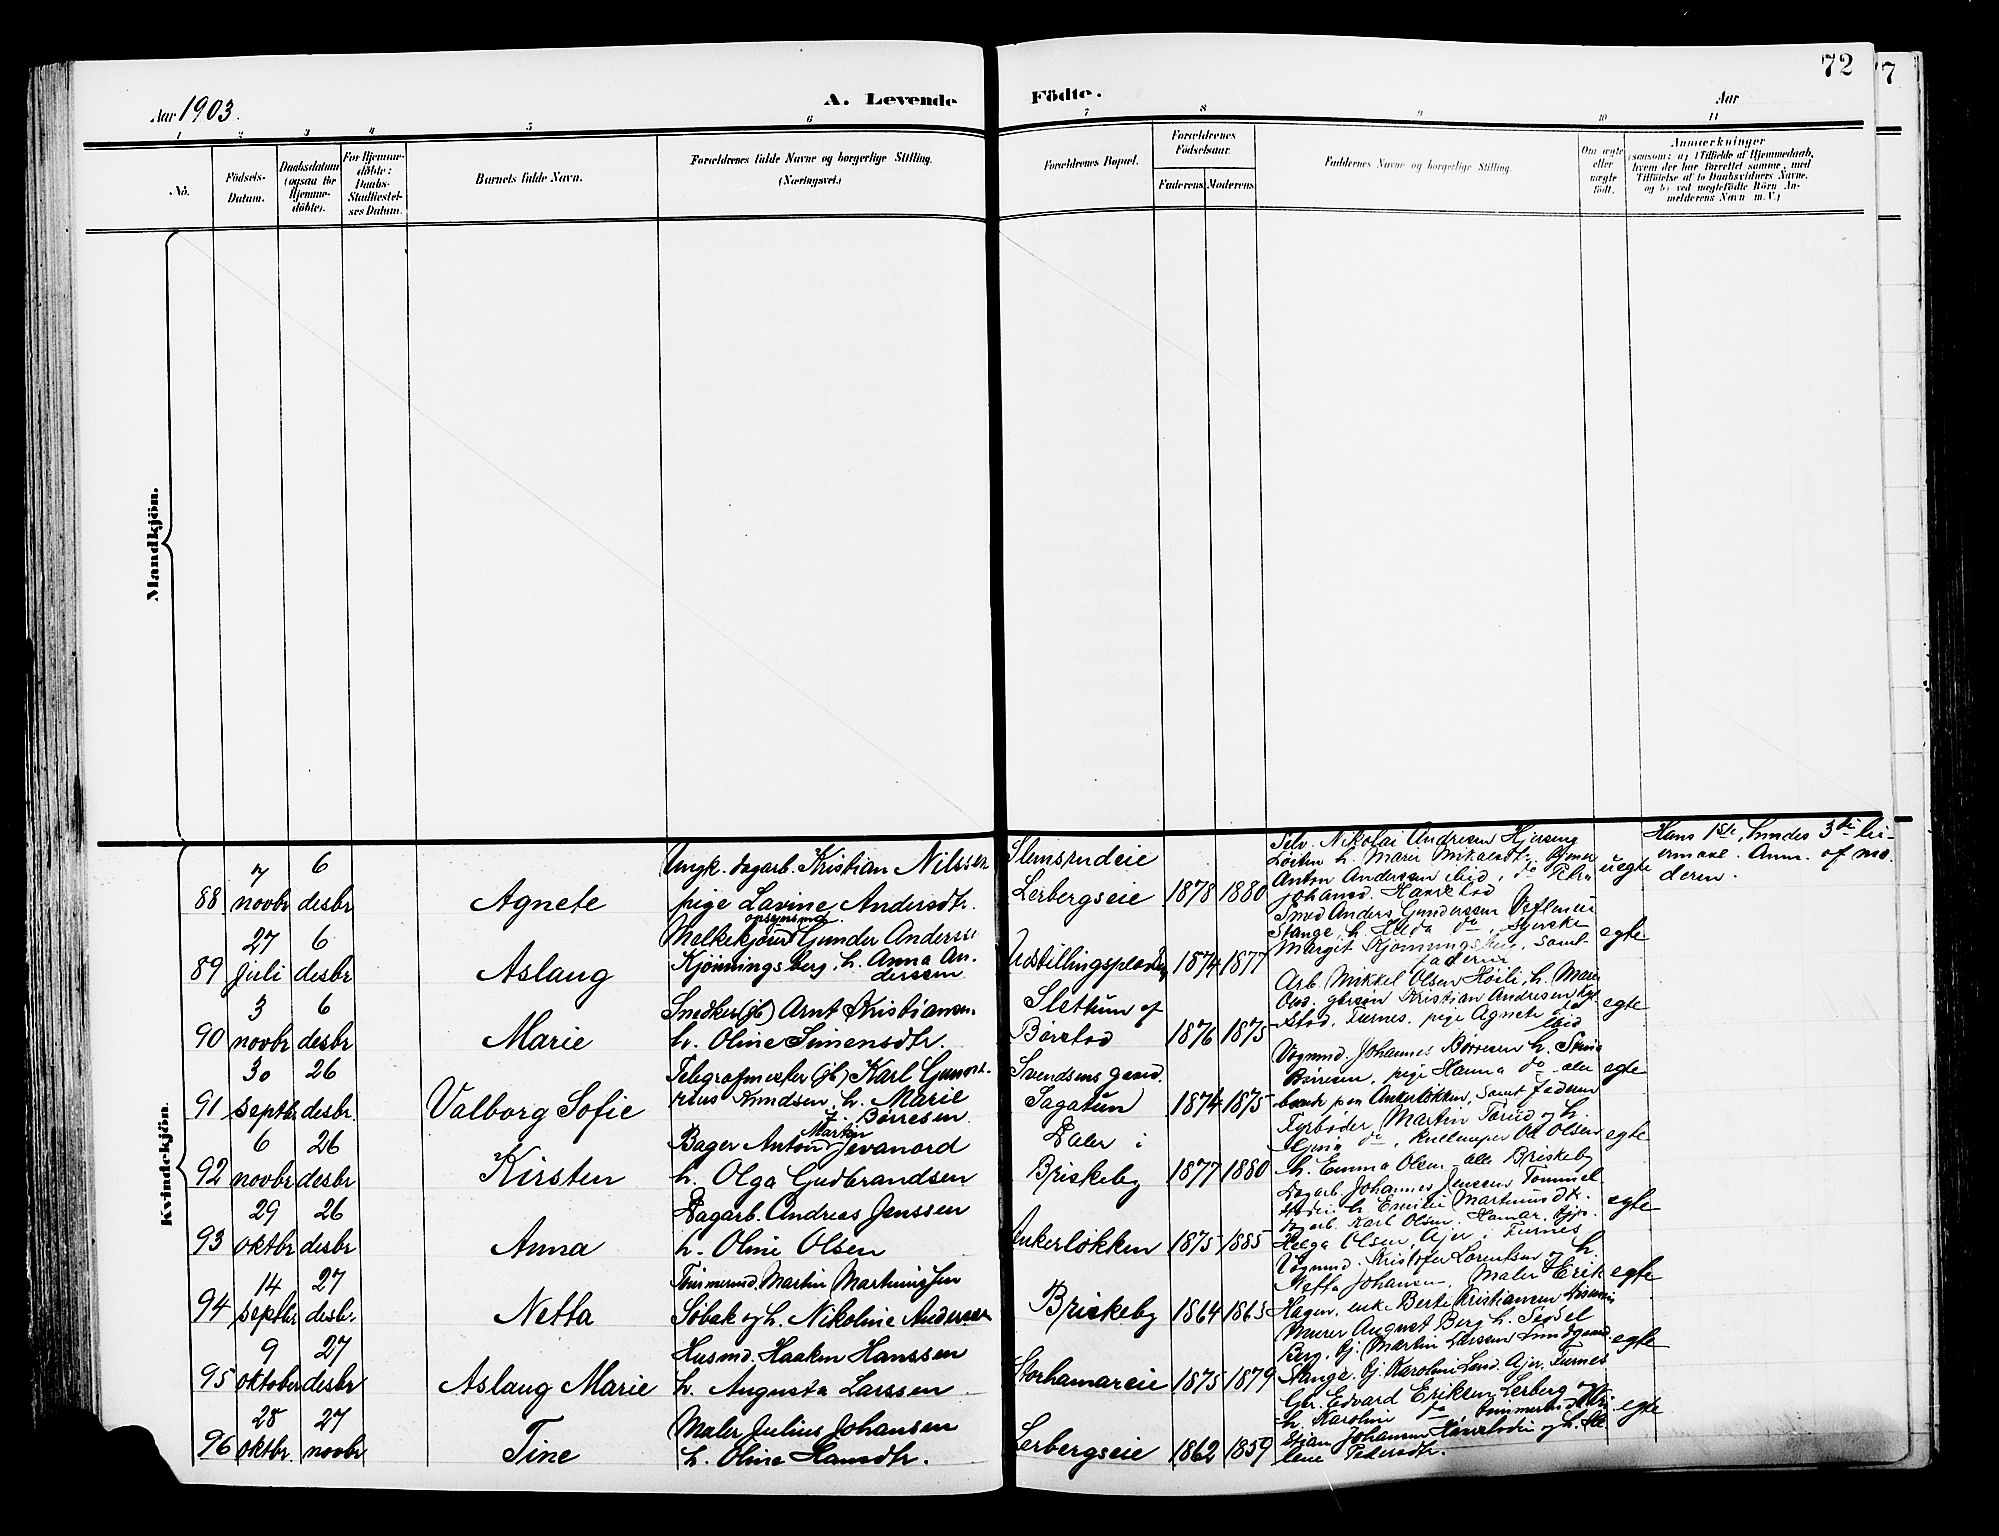 72
77
Aar 1903.
A. Levende Födte.
Aar
1 2 3 4 5 6 7 8 9 10 11
No.
Födsels-Datum.
Daabsdatum (ogsaa for Hjemme-döbte).
For Hjemme-döbte: Daabs-Stadfestel-ses Datum.
Barnets fulde Navn.
Forældrenes fulde Navne og borgerlige Stilling.
(Næringsvei.)
Forældrenes Bopæl.
Forældrenes Födselsaar.
Faderens. Moderens.
Faddernes Navne og borgerlige Stilling.
Om ægte eller uægte födt.
Anmærkninger
(saasom: a) i Tilfælde af Hjemmedaab,
hvem der har forrettet samme, med
Tilföielse af to Daabsvidners Navne,
og b) ved uægtefödte Börn An-
melderens Navn m. V.)
Mandkjön.
Kvindekjön.
88 7 novbr 6 desbr Agnete
Ungk. dagarb. Kristian Nilssen
pige Lavine Andersdtr.
Slemsrudeie
Lerbergseie 1878 1880
Selv. Nikolai Andresen Hjering
Løiten h. Marie
Anton Andersen ibid, do Petra
Johansd.
uegte
Hans 1ste, hendes 3die lei-
ermaal. Anm. af mo-
deren.
89 27 juli 6 desbr Aslaug
opsynsmd.
Melkekjører Gunder Anderssen
Kjønningsberg, h. Anna An-
derssen
Udstillingspladsen 1874 1877
Smed Anders Gunderssen
Stange, h. Hilda do,
Margit Kjønningsberg, samt
faderen
egte
90 3 novbr 6 desbr Marie
Snedker (jb) Arnt Kristiansen
h. Oline Simensdtr.
Slettum af
Børstad 1876 1875
Arb. Mikkel Olsen Høili, h. Marie
Olsd. Kristian Andresen
Furnes. pige Agnete do
ibid
egte
91 30 septbr 26 desbr Valborg Sofie
Telegrafmester (jb) Karl Gunva-
rius Knudsen, h. Marie
Børresen
Svendsens gaard.
Sagatun 1874 1875
Vognmd. Johannes Børresen h.
Børresen, pige Hanna do alle
paa Ankerløkken, samt faderen
egte
92 6 novbr 26 desbr Kirsten
Martin
Bager Anton Jevanord
h. Olga Gudbrandsen
Daler i
Briskeby 1877 1880
Fyrbøder Martin Torud og h.
do, Ole Olsen
h. Emma Olsen alle Briskeby
egte
93 29 oktbr 26 desbr Anna
Dagarb. Andreas Jenssen
h. Oline Olsen
Ankerløkken 1875 1885
Dagarb. Johannes Jenssen Tommel-
h. Emilie Martinusdtr.
arb. Karl Olsen, Hamar.
Helga Olsen, Ajer, Furnes
egte
94 14 septbr 27 desbr. Netta
Tømmermd. Martin Martiniussen
Søbak og h. Nikoline Anderssen
Briskeby 1864 1865
Vognmd. Kristofer Lorentsen og h.
Netta Johansen, Maler Erik
Hagen, enke Berte Kristiansen
egte
95 9 oktober 27 desbr Aslaug Marie
Husmd. Haakon Hanssen
h. Augusta Larssen
Storhamareie 1875 1879
Murer August Berg h. Sedsel
Berg, Gj. Martin Larssen
Stange, Gj. Karoline Ajer, Furnes
egte
96 28 oktbr. 27 novbr Tine
Maler Julius Johansen
h. Oline Hansdtr.
Lerbergseie 1862 1859
Gbr. Edvard Eriksen Lerberg og
h. Karoline do Tømmermd. Kri-
stian Johansen og h. He-
lene Pedersdtr.
egte